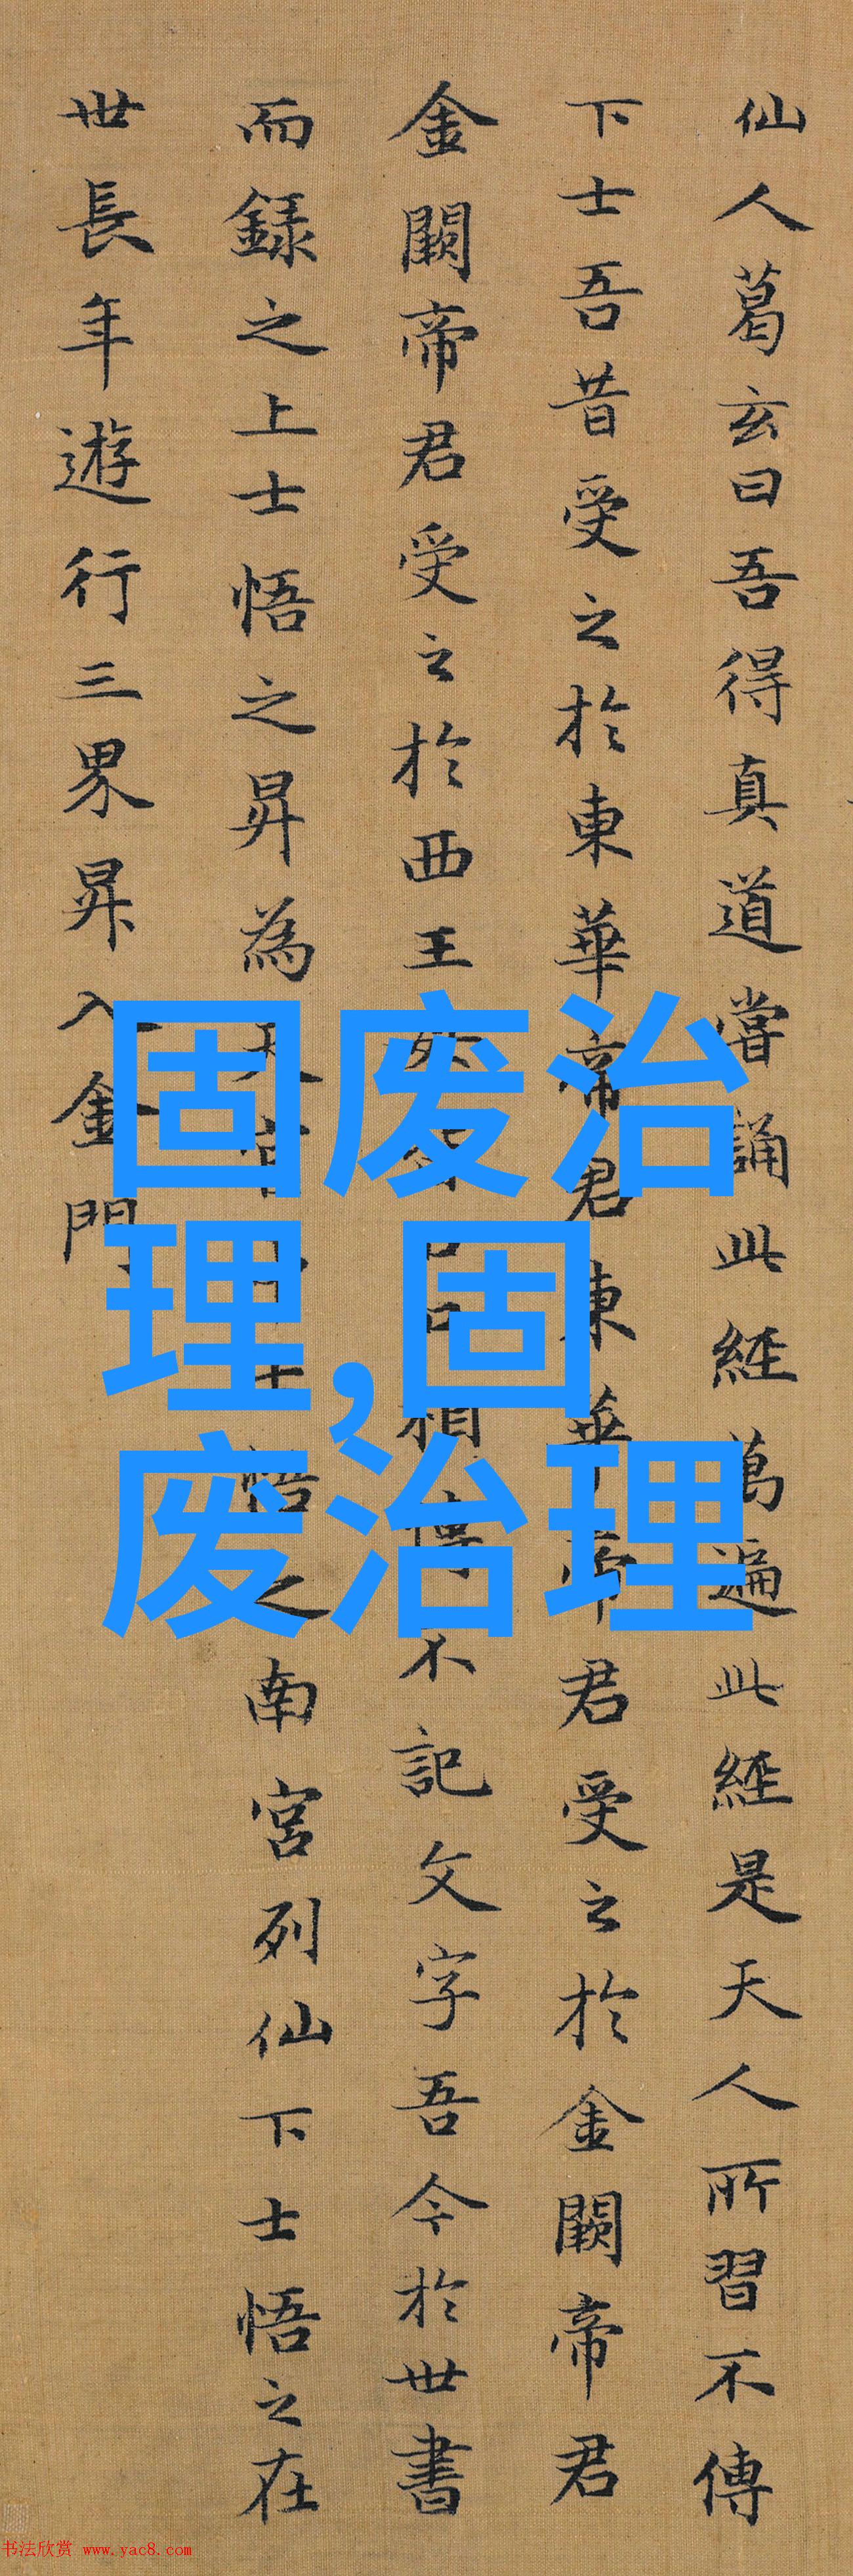 仙人葛玄曰吾得真道嘗誦此經萬遍此經是天人所習不傳
下士吾昔受之於東華帝君東華帝君受之於金闕帝君
金闕帝君受之於西王口相傳不記文字吾今於世書
而録之上士悟之昇為天官士悟之南宮列仙下士悟之在
世長年遊行三界昇入金門
固废治
理,固
废治理
书法欣赏 www.yac8.com